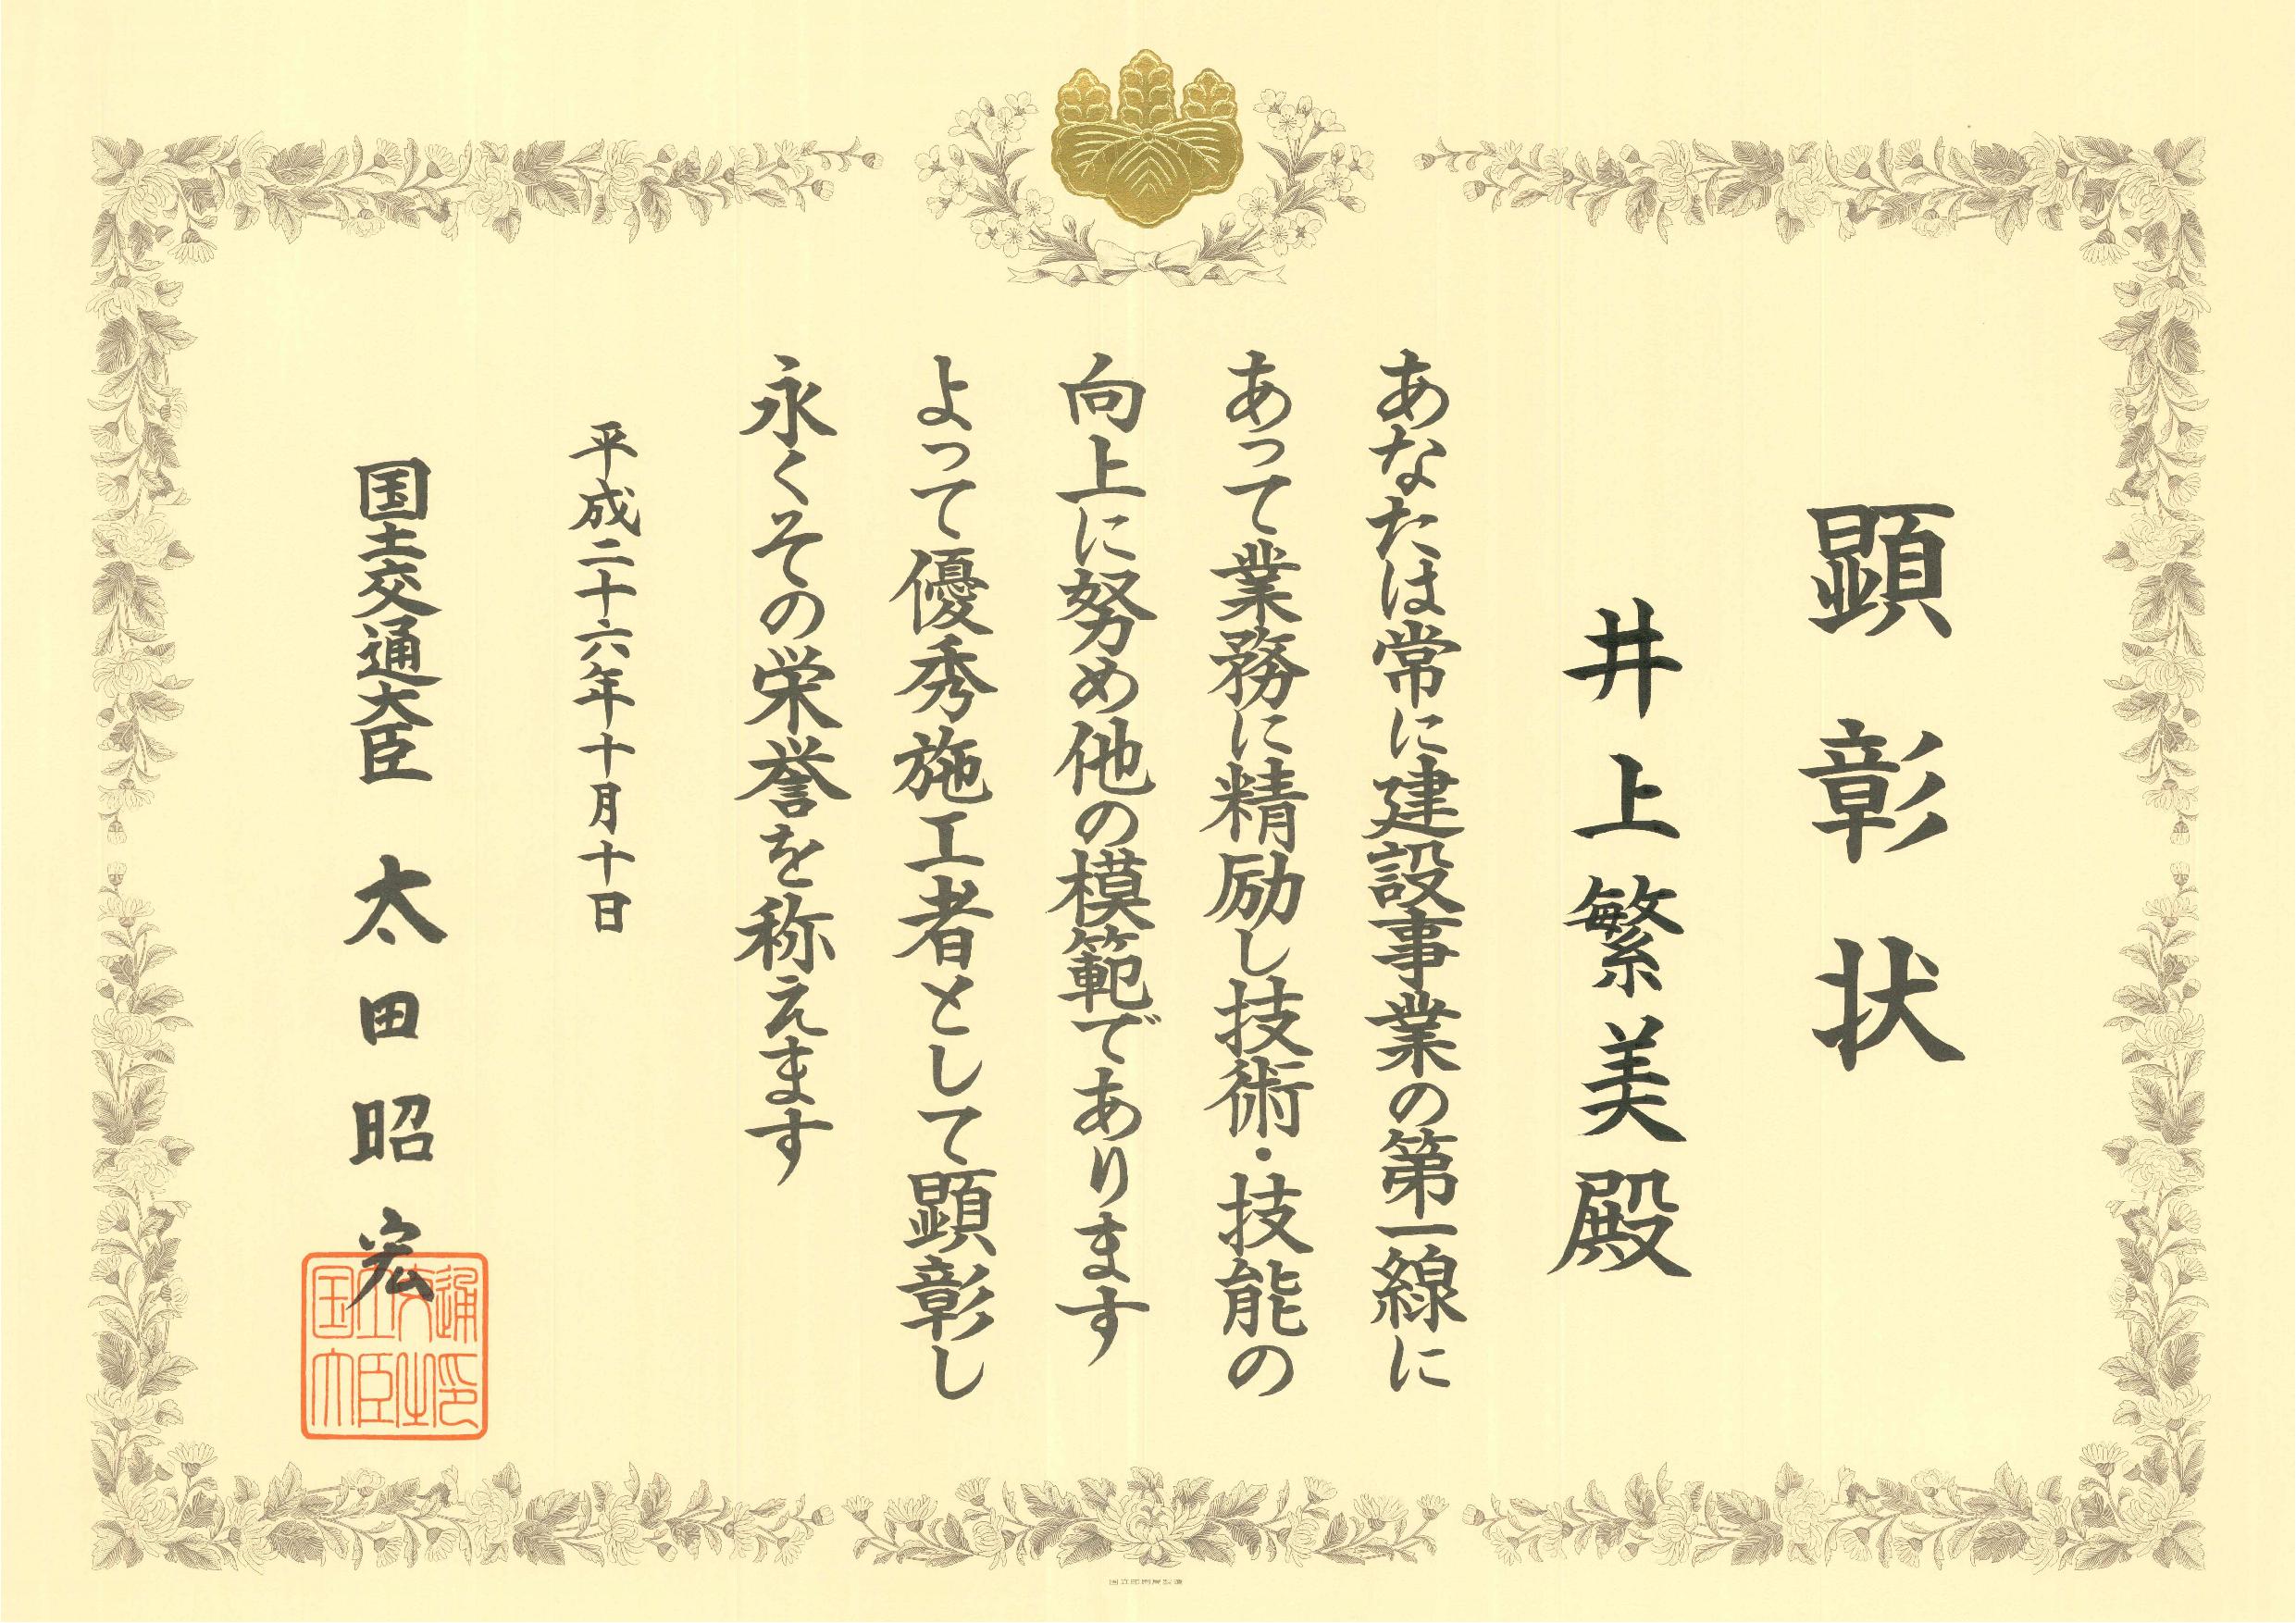 顕彰状
井上繁美殿
あなたは常に建設事業の第一線に
あって業務に精励し技術・技能の
向上に努め他の模範であります
よって優秀施工者として顕彰し
永くその栄誉を称えます
平成二十六年十月十日
国土交通大臣 太田昭宏
国土交通大臣之印